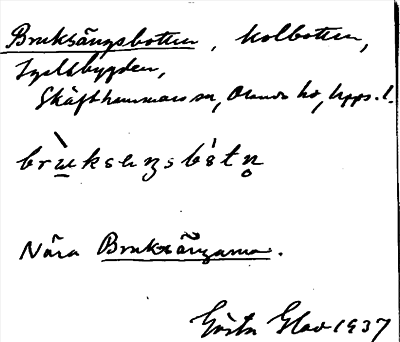 Bruksängsbotten, kolbotten,
Tzeltbygden,
Skäfthammars sn, Olands hd, Upps. l.
Nära Bruksängarna.
Gösta Glav 1937